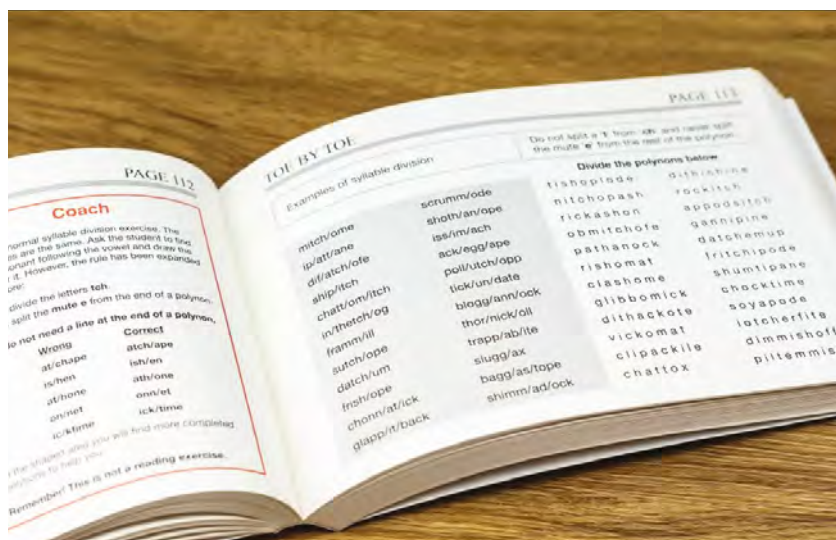 PAGE 112
Coach
normal syllable division exercise. The
es are the same. Ask the student to find
onant following the vowel and draw the
it. However, the rule has been expanded
ere:
divide the letters tch.
split the mute e from the end of a polynon.
o not need a line at the end of a polynon.
Wrong Correct
at/chape atch/ape
is/hen ish/en
at/hone ath/one
on/net onn/et
ic/ktime ick/time
the shaded area you will find more completed
polynons to help you.
Remember! This is not a reading exercise.
TOE BY TOE PAGE 113
Examples of syllable division
mitch/ome
ip/att/ane
dif/atch/ofe
ship/itch
chatt/om/itch
in/thetch/og
framm/ill
sutch/ope
datch/um
frish/ope
chonn/at/ick
glapp/it/back
scrumm/ode
shoth/an/ope
iss/im/ach
ack/egg/ape
poll/utch/opp
tick/un/date
blogg/ann/ock
thor/nick/oll
trapp/ab/ite
slugg/ax
bagg/as/tope
shimm/ad/ock
Do not split a 't' from 'ch' and never split
the mute 'e' from the rest of the polynon.
Divide the polynons below
tishoplode
nitchopash
rickashon
obmitchofe
pathanock
rishomat
clashome
glibbomick
dithackote
vickomat
clipackile
chattox
dithishine
rockitsh
appoditch
gannipine
datchemup
fritchipode
shumtipane
chocktime
soyapode
lotcherfite
dimmishoft
piltemmis